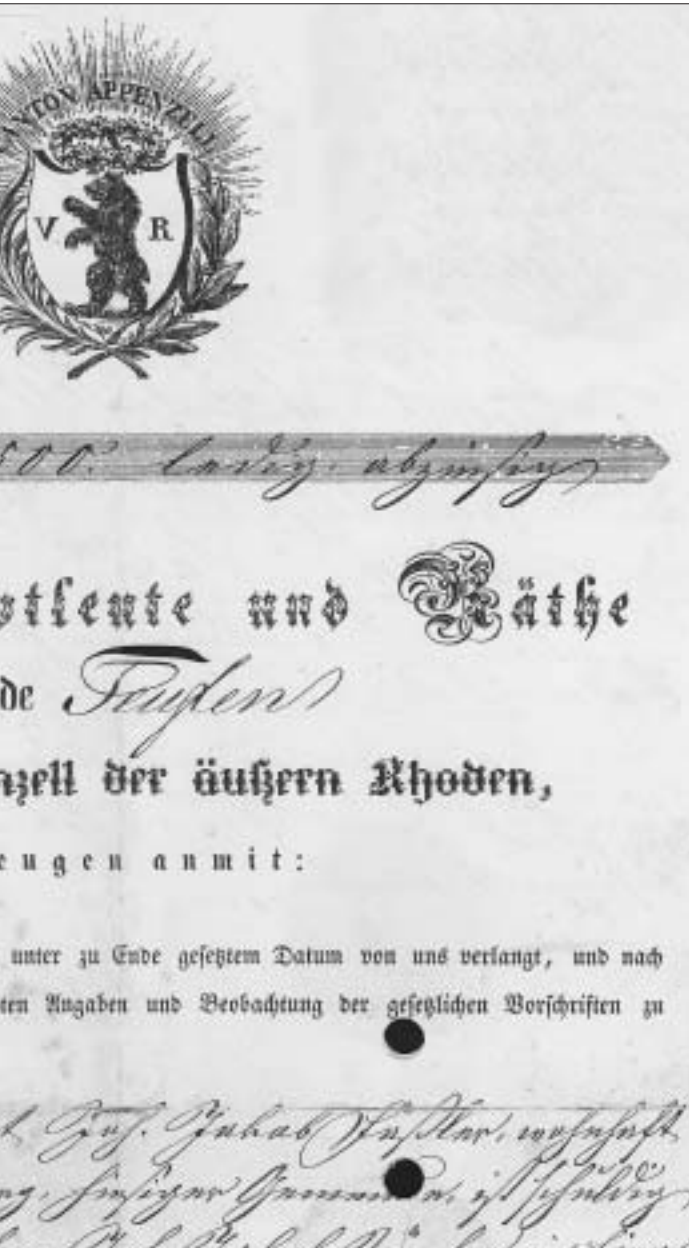 ANTON APPENZELL
V R
500. ledig, abzinsig
ptleute und Räthe
de Teufen
nzell der äußern Rhoden,
eugen anmit:
unter zu Ende gesetztem Datum von uns verlangt, und nach
ten Angaben und Beobachtung der gesetzlichen Vorschriften zu
t Joh. Jakob wohnhaft
hiesiger Gemeinde, ist schuldig